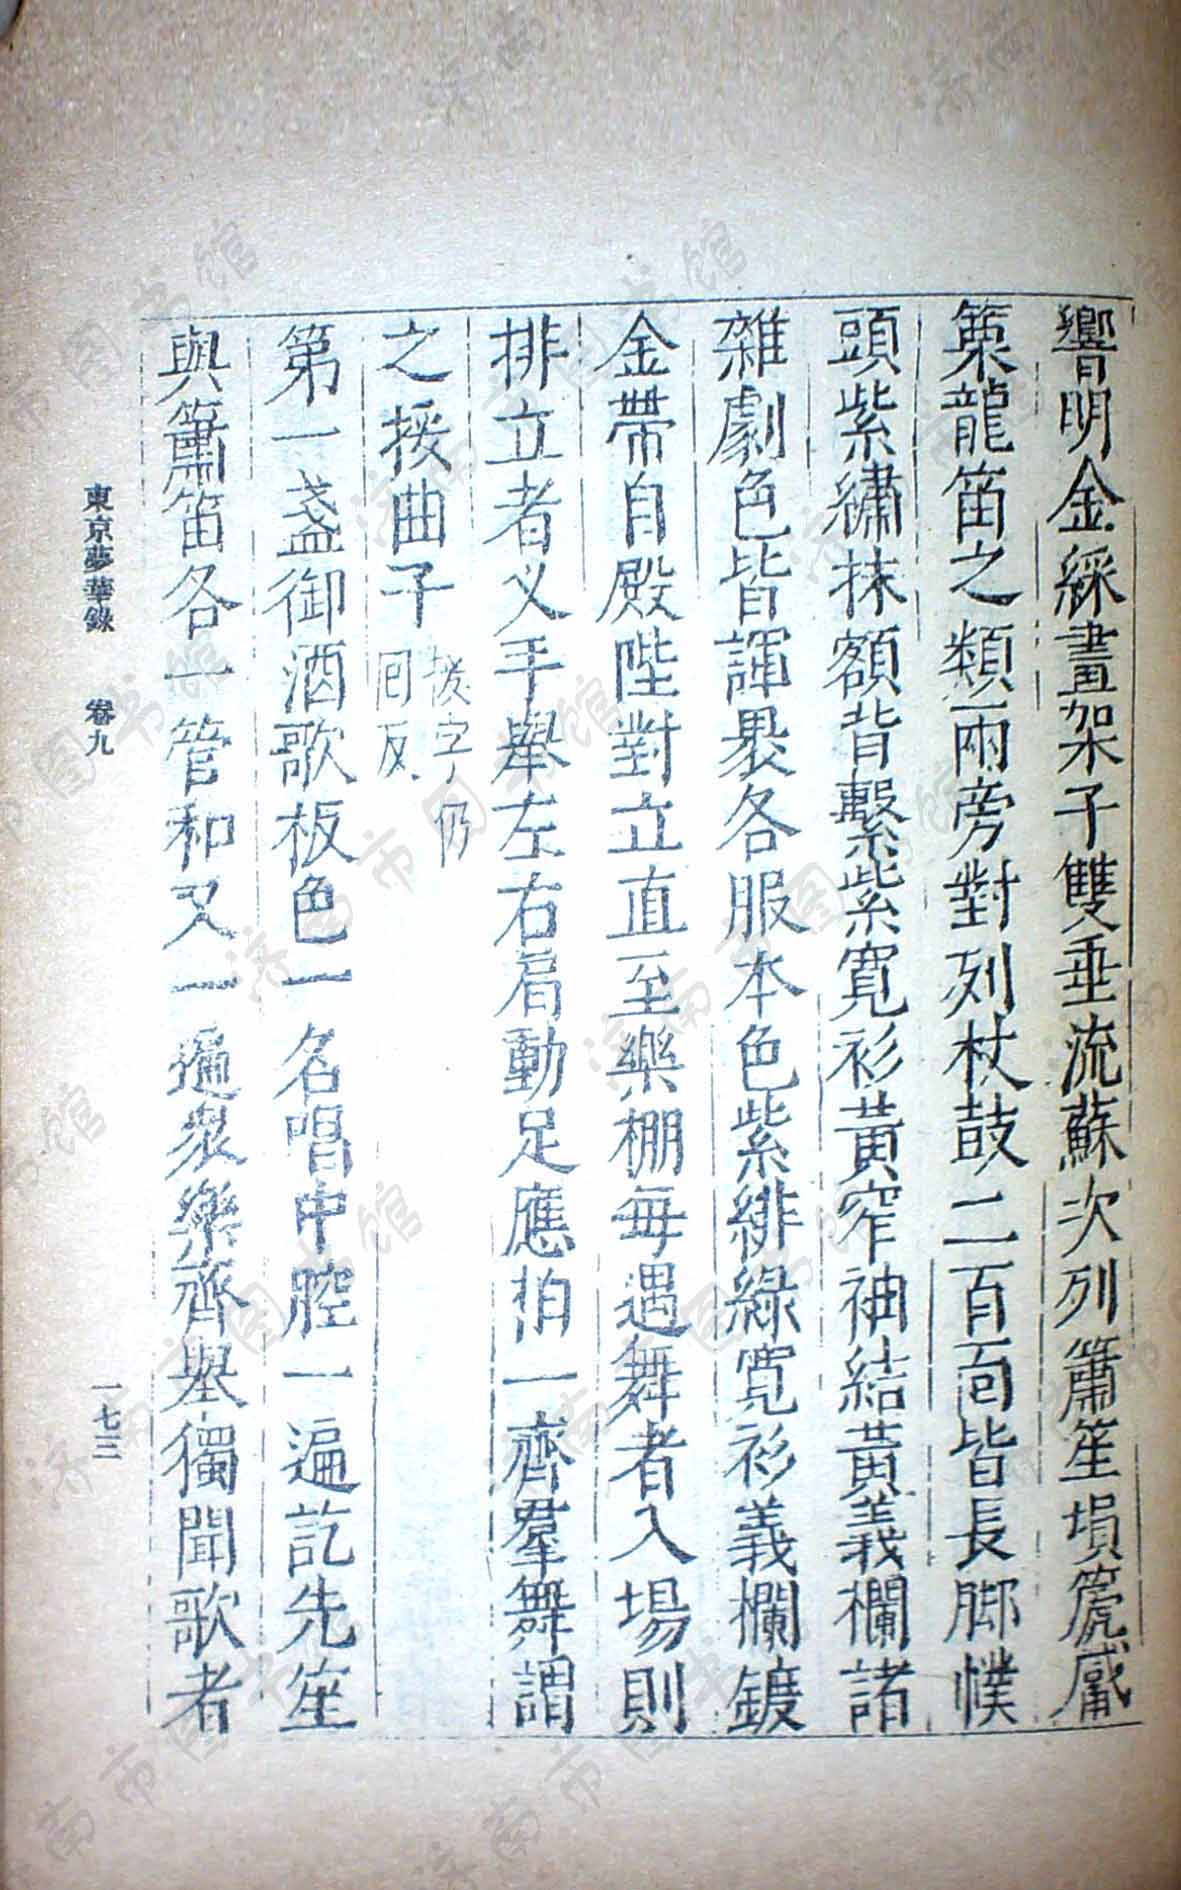 響明金綵畫架子雙垂流蘇次列簫笙塤篪觱
篥龍笛之類兩旁對列杖鼓二百面皆長脚幞
頭紫繡抹額背繫紫寬衫黃窄袖結黃義襴諸
雜劇色皆諢褁各服本色紫緋綠寬衫義襴鍍
金帶自殿陛對立直至樂棚每遇舞者入場則
排立者义手舉左右肩動足應拍一齊羣舞謂
之挼曲子
挼字仍
回反
第一盞御酒歌板色一名唱中腔一遍訖先笙
與簫笛各一管和又一遍衆樂齊舉獨聞歌者
東京夢華錄 卷九 一七三
济南市图书馆